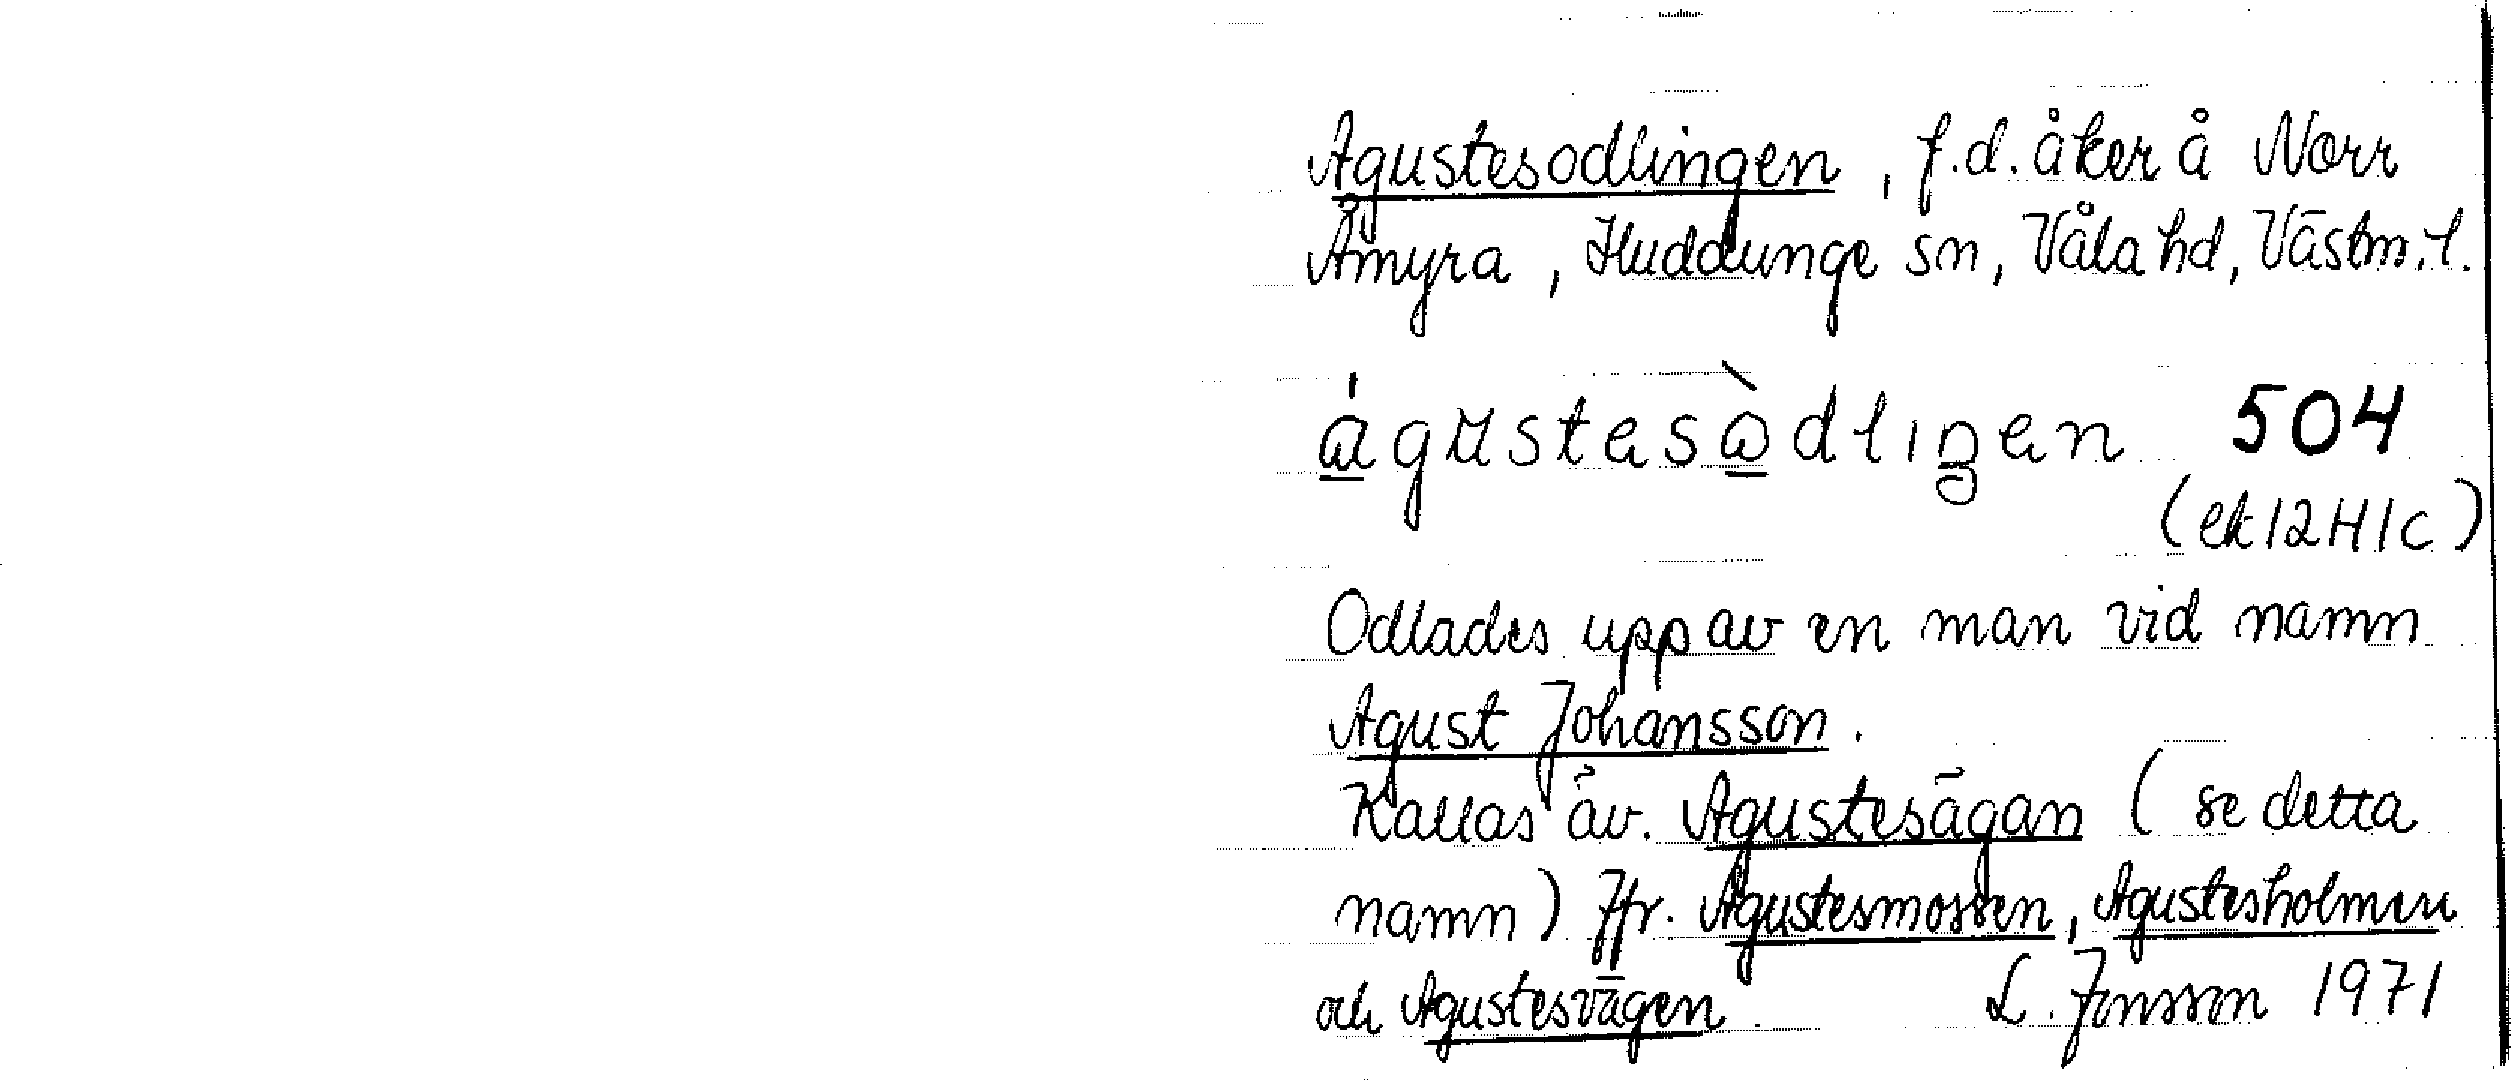 Agustesodlingen, f.d. åker å Norr
Åmyra, Huddunge sn, Våla hd, Västm. l.
504
(ek 12H1c)
Odlades upp av en man vid namn
Agust Johansson.
Kallas äv. Agustesägan (se detta
namn) Jfr. Agustesmossen, Agustesholmen
och Agustesvägen. L. Jonsson 1971